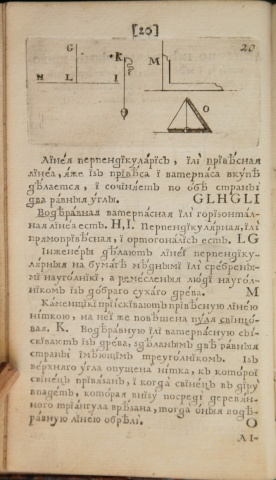 [20]
20
G
K
M
H L I
O
Лїнея перпендїкуларїсъ, їлї прївѣсная
лїнеа, яже їзъ прївѣса ї ватерпаса вкупѣ
дѣлается, ї сочїняетъ по обѣ страны
два равныя углы. GLHGLI
Водѣравная ватерпасная їлї горїзонтал-
ная лїнеа есть. H,I. Перпендїкулярная, їлї
прямопрївѣсная, ї ортогоналїсъ есть. LG
Їнженеры дѣлаютъ лїнеї перпендїку-
лярныя на бумагѣ мѣднымї їлї сребрены-
мї науголнїкї, а ремесленыя людї наугол-
нїкомъ їзъ доброго сухаго древа. M
Каменщїкї прїїскїваютъ прївѣсную лїнею
нїткою, на неї же повѣшена пуля свїнцо-
вая. K. Водѣравную їлї ватерпасную сыї-
скїваютъ їзъ древа, здѣланымъ двѣ равныя
страны їмѣющїмъ треуголнїкомъ. Їзъ
верхняго угла опущена нїтка, къ которої
свїнецъ прївязанъ, ї когда свїнецъ въ дїру
впадетъ, которая внїзу посредї деревян-
ного трїангула врѣзана, тогда оныя водѣ-
равную лїнею обрѣлї. O
ЛІ-